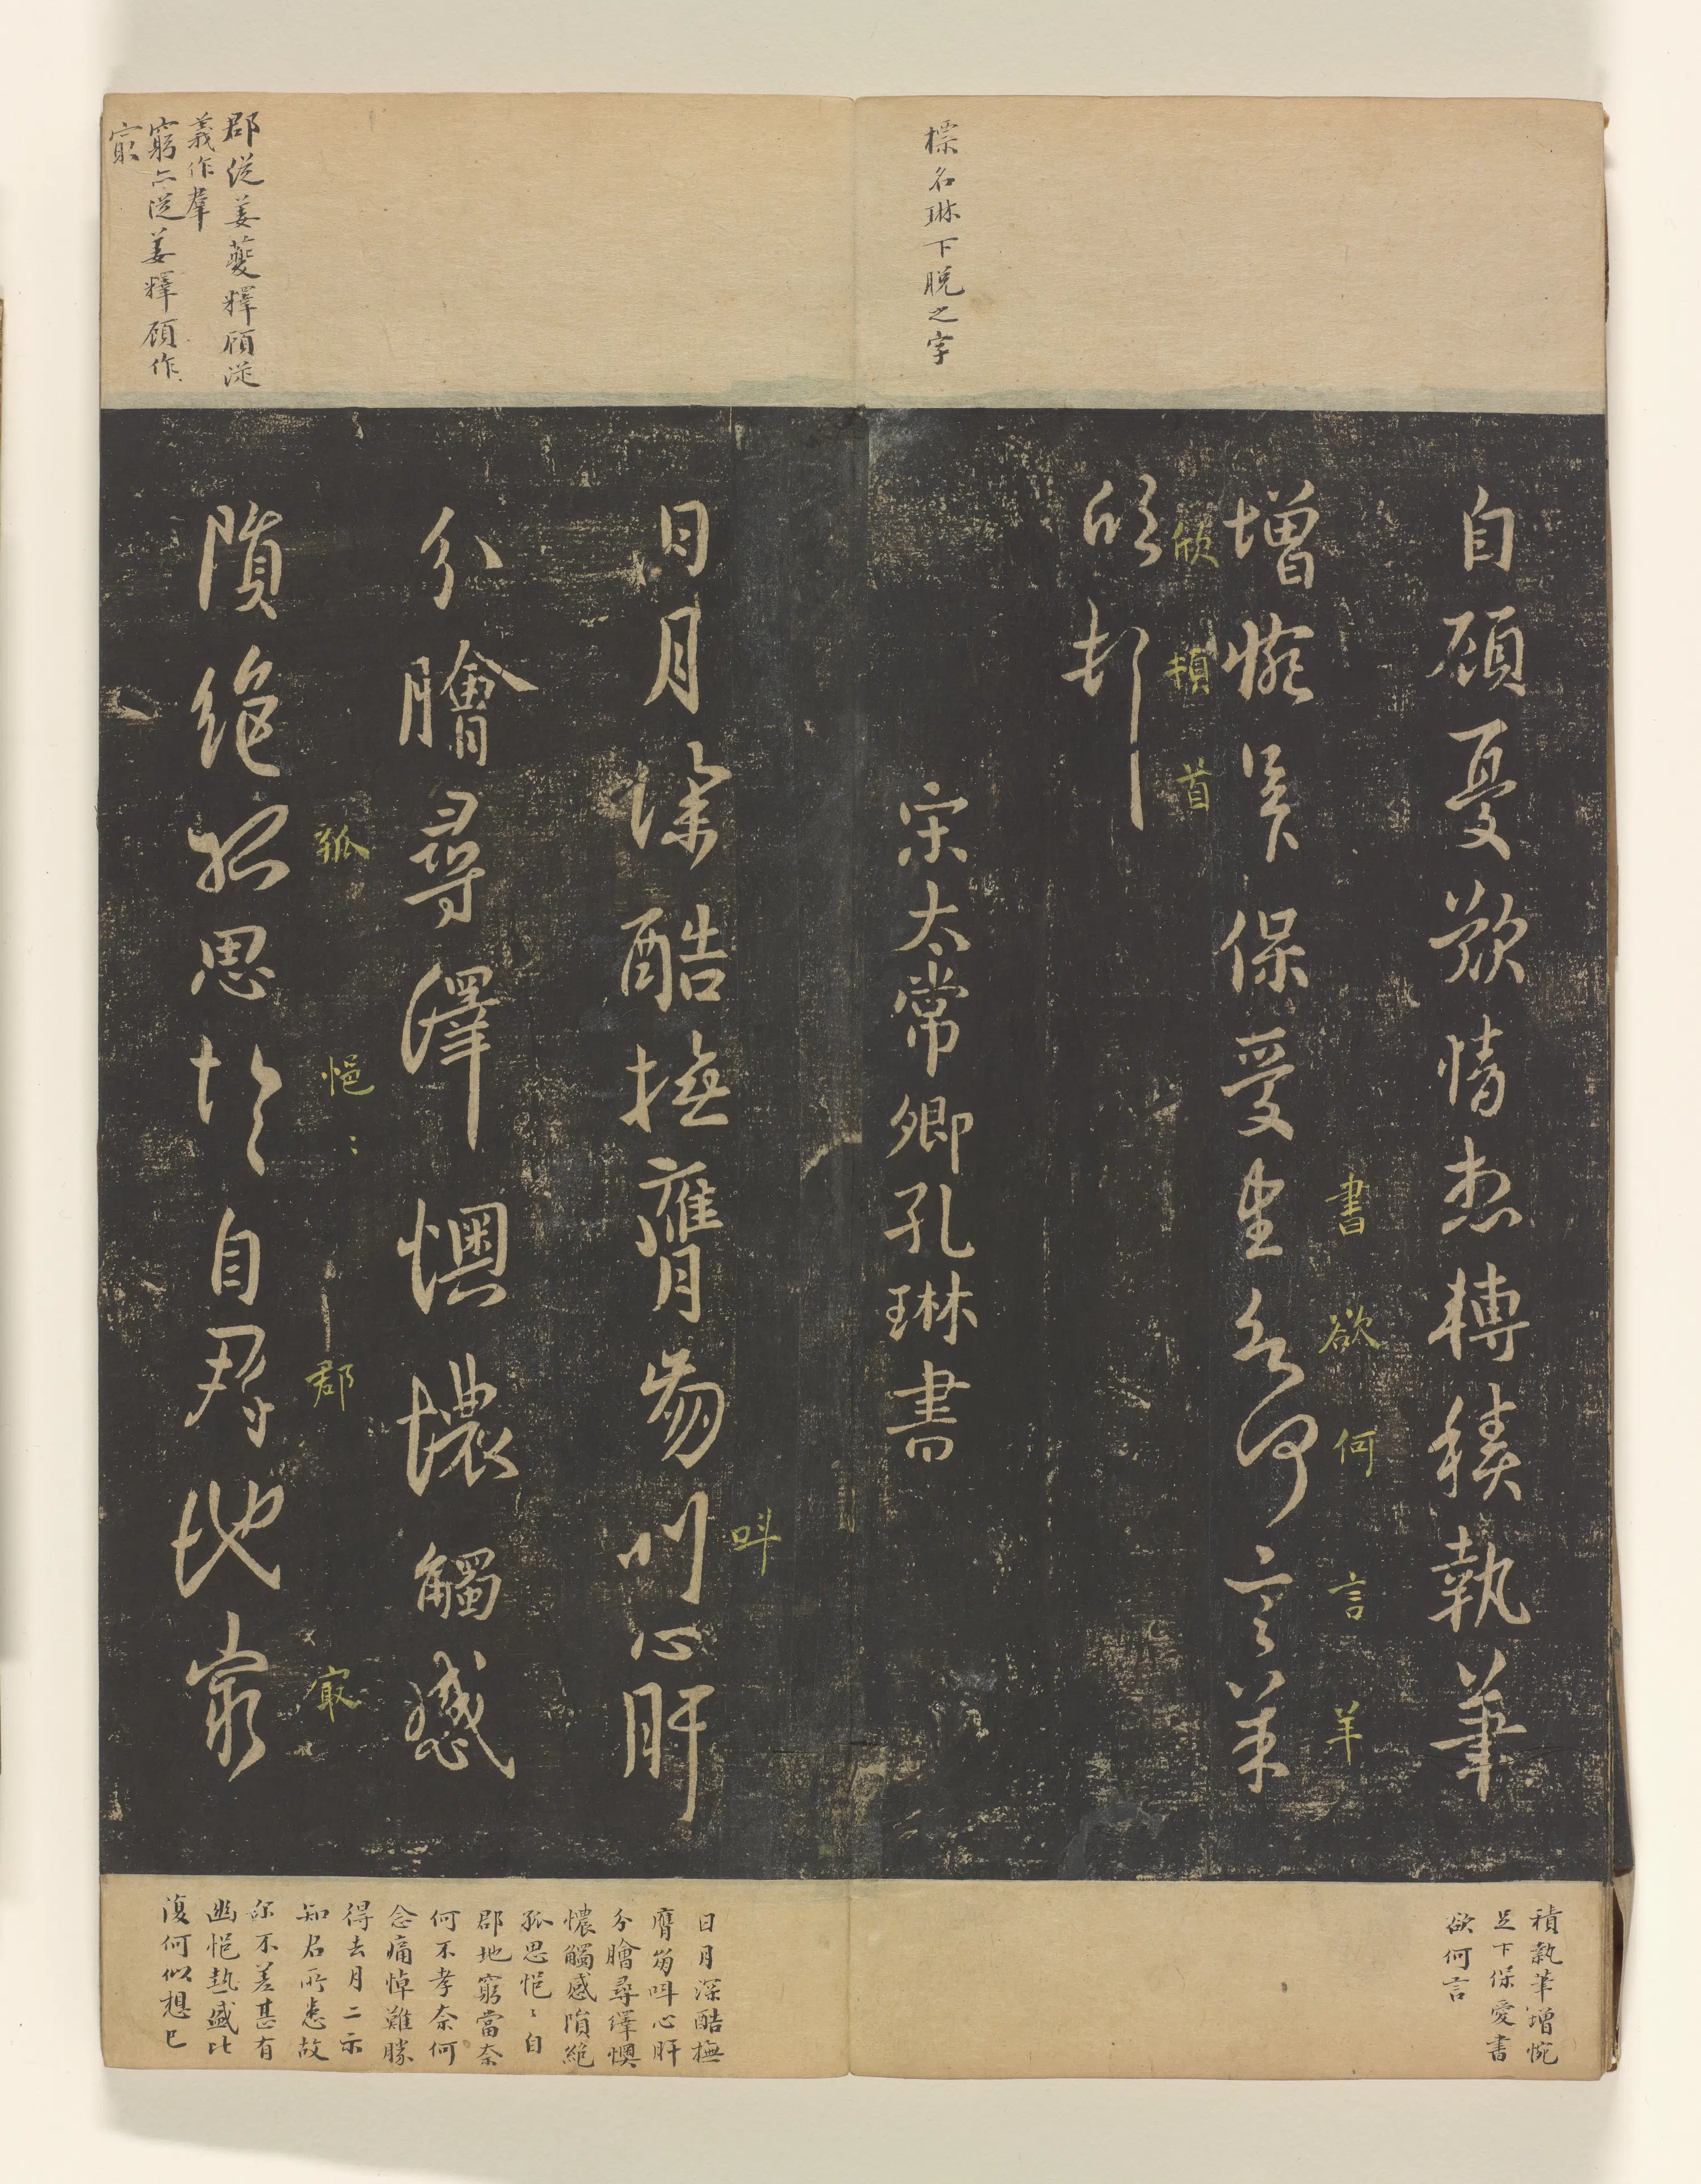 標名琳下脫之字
郡從姜夔釋顧從
義作羣
窮亦從姜釋顧作
㝡
自顧憂歎情想轉積執筆
書欲何言羊
增惋足下保愛書欲何言羊
欣頓首
欣頓首
宋太常卿孔琳書
呌
日月深酷撫膺芻叫心肝
分膾尋繹懊憹觸感
孤悒〻郡㝡
隕絕孤思悒〻自郡地窮
積執筆增惋
足下保愛書
欲何言
日月深酷撫
膺芻呌心肝
分膾尋繹懊
憹觸感隕絕
孤思悒〻自
郡地窮當奈
何不孝奈何
念痛悼難勝
得去月二示
知君所患故
爾不差甚有
幽悒熱盛比
復何似想已